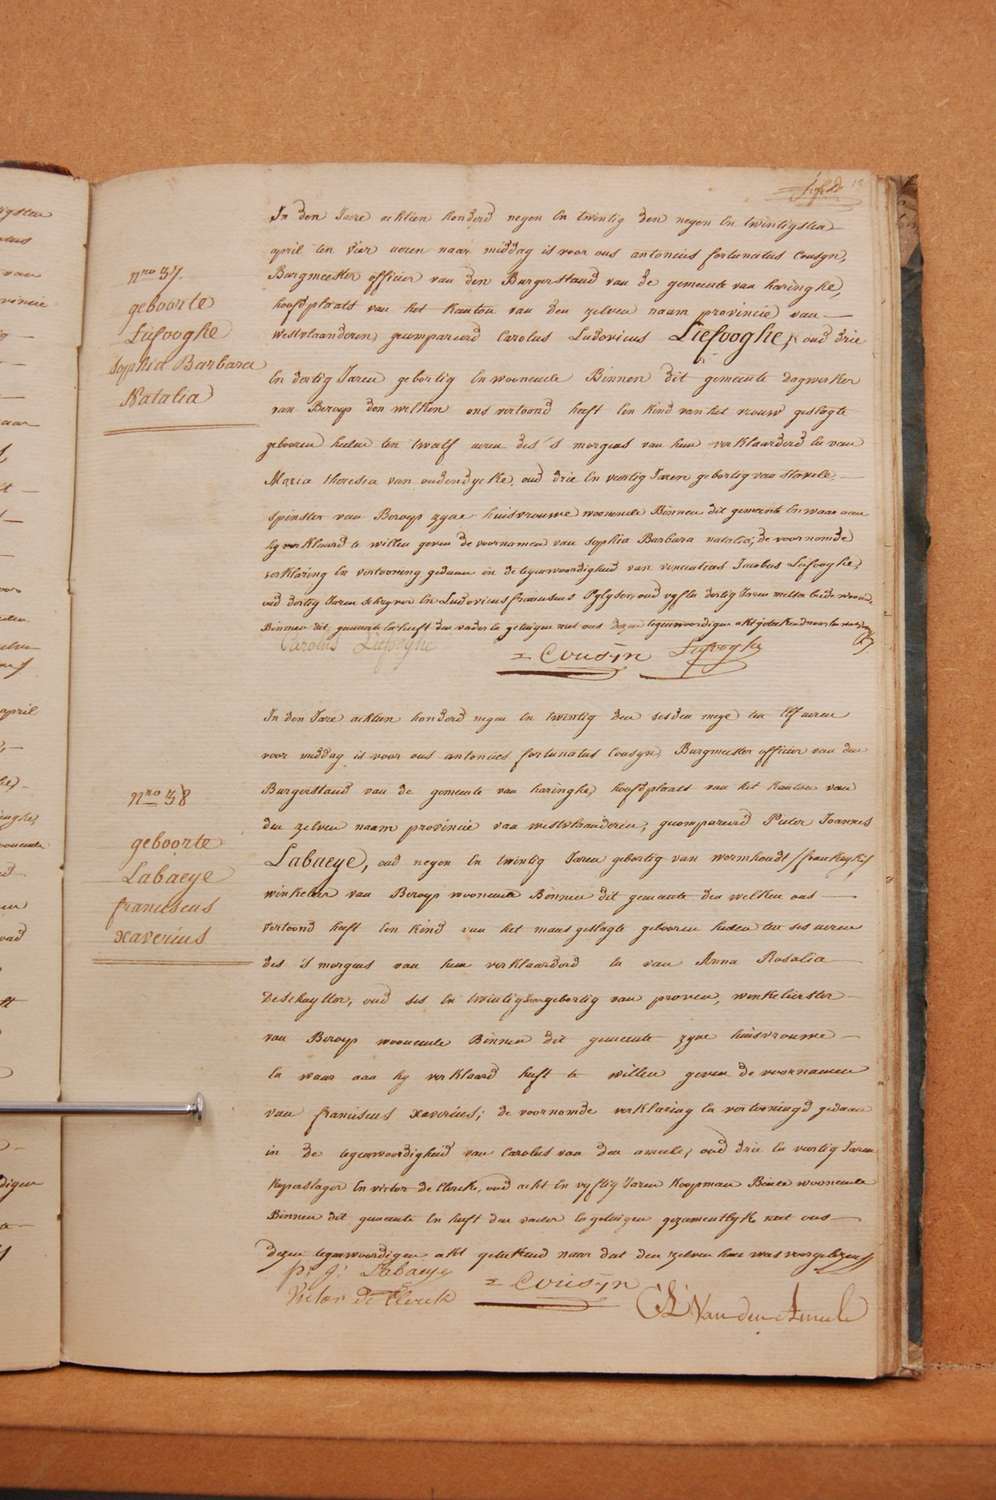 nro 37
geboorte
Liefooghe
Sophia Barbara
Natalia
In den Jare achtien honderd negen En twintig den negen En twintigsten
april ten vier ueren naar middag is voor ons antonius fortunatus Cousyn,
Burgmeester officier van den Burgerstand van de gemeente van haringhe,
hoofdplaats van het kanton van den zelven naam provincie van
westvlaanderen, gecompareerd Carolus Ludovicus Liefooghe, oud drie
En dertig Jaren gebortig En woonende Binnen dit gemeente dagwerker
van Beroep den welken ons vertoond heeft Een kind van het vrouw geslagte
geboren heden ten twalf uren des 's morgens van hem verklaarderd En van
Maria theresia van oudendycke, oud drie En veertig Jaren gebortig van Stavele,
spinster van Beroep zyne huisvrouwe woonende Binnen dit gemeente En waar aan
hy verklaard te willen geven de voornamen van sophia Barbara natalia; de voornomde
verklaring En vertooning gedaan in de tegenwoordigheid van vincentius Jacobus Liefooghe,
oud dertig Jaren schryver En Ludovicus franciscus Pylyser, oud vyf En dertig Jaren beide
Binnen dit gemeente En heeft den vader En getuigen met ons dezen tegenwoordigen akt geteekend
Carolus Liefooghe
Cousyn
Liefooghe
nro 38
geboorte
Labaeye
franciscus
xaverius
In den Jare achtien honderd negen En twintig den sesden meye ten Elf uren
voor middag is voor ons antonius fortunatus Cousyn, Burgmeester officier van den
Burgerstand van de gemeente van haringhe, hoofdplaats van het kanton van
den zelven naam provincie van westvlaanderen, gecompareerd Pieter Joannes
Labaeye, oud negen En twintig Jaren gebortig van wormhoudt /frankryk/
winkelier van Beroep woonende Binnen dit gemeente den welken ons
vertoond heeft Een kind van het mans geslagte geboren heden ten ses uren
des 's morgens van hem verklaarderd En van Anna Rosalia
Deschuytter, oud ses En twintig gebortig van proven, winkelierster
van Beroep woonende Binnen dit gemeente zyne huisvrouwe
En waar aan hy verklaard heeft te willen geven de voornamen
van franciscus xaverius; de voornomde verklaring En vertooningd gedaan
in de tegenwoordigheid van Carolus van den ameele, oud drie En veertig Jaren
koperslager En victor de Clerck, oud acht En vyftig Jaren koopman Beide woonende
Binnen dit gemeente En heeft den vader En getuigen gezamentlyk met ons
dezen tegenwoordigen akt geteekend naar dat den zelven hun was voorgelezen
p: J: Labaeye
Cousyn
Victor De Clerck
Van den Ameele